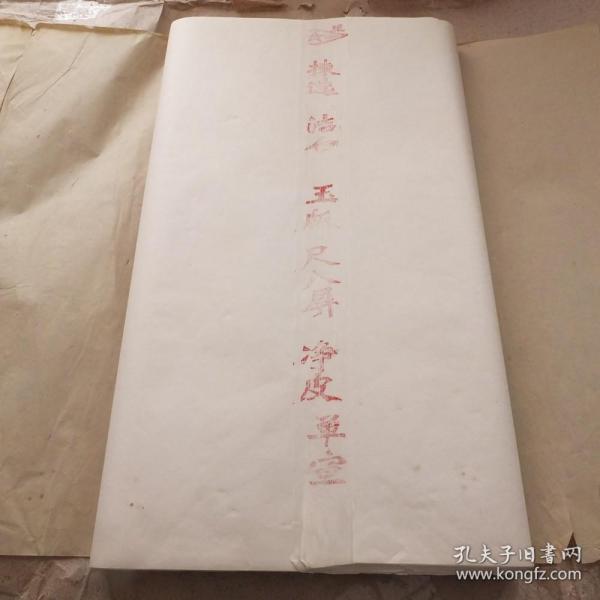 拣选 洁白 玉版 尺八屏 净皮 单宣
孔夫子旧書网
www.kongfz.com